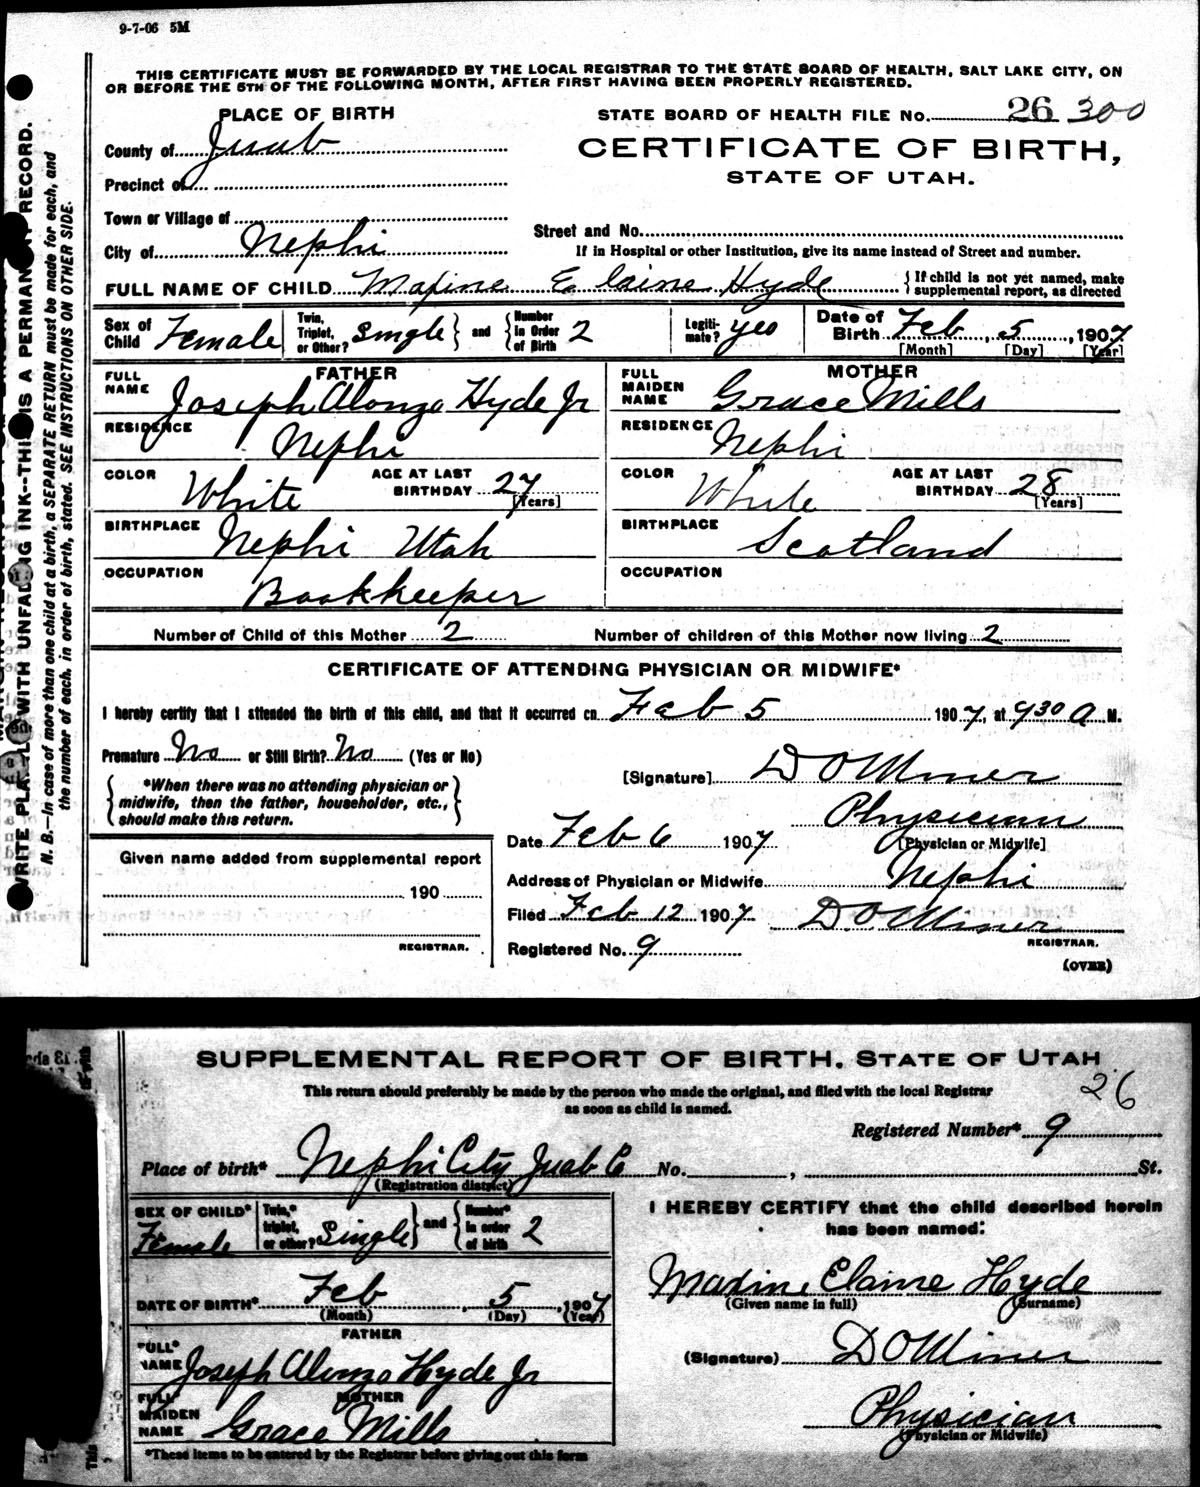 9-7-06 5M
THIS CERTIFICATE MUST BE FORWARDED BY THE LOCAL REGISTRAR TO THE STATE BOARD OF HEALTH, SALT LAKE CITY, ON
OR BEFORE THE 5TH OF THE FOLLOWING MONTH, AFTER FIRST HAVING BEEN PROPERLY REGISTERED.
PLACE OF BIRTH
STATE BOARD OF HEALTH FILE No. 26 300
County of Juab
CERTIFICATE OF BIRTH,
STATE OF UTAH.
Precinct of
Town or Village of
Street and No.
City of Nephi
If in Hospital or other Institution, give its name instead of Street and number.
FULL NAME OF CHILD Maxine Elaine Hyde { If child is not yet named, make supplemental report, as directed
Sex of Child Female Twin, Triplet, or Other? Single } and { Number in Order of Birth 2 Legitimate? yes Date of Birth Feb 5, 1907
[Month] [Day] [Year]
FATHER
FULL NAME Joseph Alonzo Hyde Jr
MOTHER
FULL MAIDEN NAME Grace Mills
RESIDENCE Nephi
RESIDENCE Nephi
COLOR White AGE AT LAST BIRTHDAY 27 [Years]
COLOR White AGE AT LAST BIRTHDAY 28 [Years]
BIRTHPLACE Nephi Utah
BIRTHPLACE Scotland
OCCUPATION Bookkeeper
OCCUPATION
Number of Child of this Mother 2 Number of children of this Mother now living 2
CERTIFICATE OF ATTENDING PHYSICIAN OR MIDWIFE*
I hereby certify that I attended the birth of this child, and that it occurred on Feb 5 1907, at 930 A M.
Premature No or Still Birth? No (Yes or No)
[Signature] D O Miner
*When there was no attending physician or
midwife, then the father, householder, etc.,
should make this return.
Physician
[Physician or Midwife]
Date Feb 6 1907
Given name added from supplemental report
190
REGISTRAR.
Address of Physician or Midwife Nephi
Filed Feb 12 1907 D O Miner
REGISTRAR.
Registered No. 9
(OVER)
WRITE PLAINLY WITH UNFADING INK--THIS IS A PERMANENT RECORD.
N. B.—In case of more than one child at a birth, a SEPARATE RETURN must be made for each, and
the number of each, in order of birth, stated. SEE INSTRUCTIONS ON OTHER SIDE.
SUPPLEMENTAL REPORT OF BIRTH, STATE OF UTAH
This return should preferably be made by the person who made the original, and filed with the local Registrar
as soon as child is named.
26
Registered Number* 9
Place of birth* Nephi City Juab C No. , St.
(Registration district)
SEX OF CHILD* Female Twin,* triplet, or other? Single } and { Number* in order of birth 2
I HEREBY CERTIFY that the child described herein
has been named:
DATE OF BIRTH* Feb 5, 1907
(Month) (Day) (Year)
Maxine Elaine Hyde
(Given name in full) (Surname)
FATHER
FULL* NAME Joseph Alonzo Hyde Jr
(Signature) D O Miner
MOTHER
FULL MAIDEN NAME Grace Mills
Physician
(Physician or Midwife)
*These items to be entered by the Registrar before giving out this form